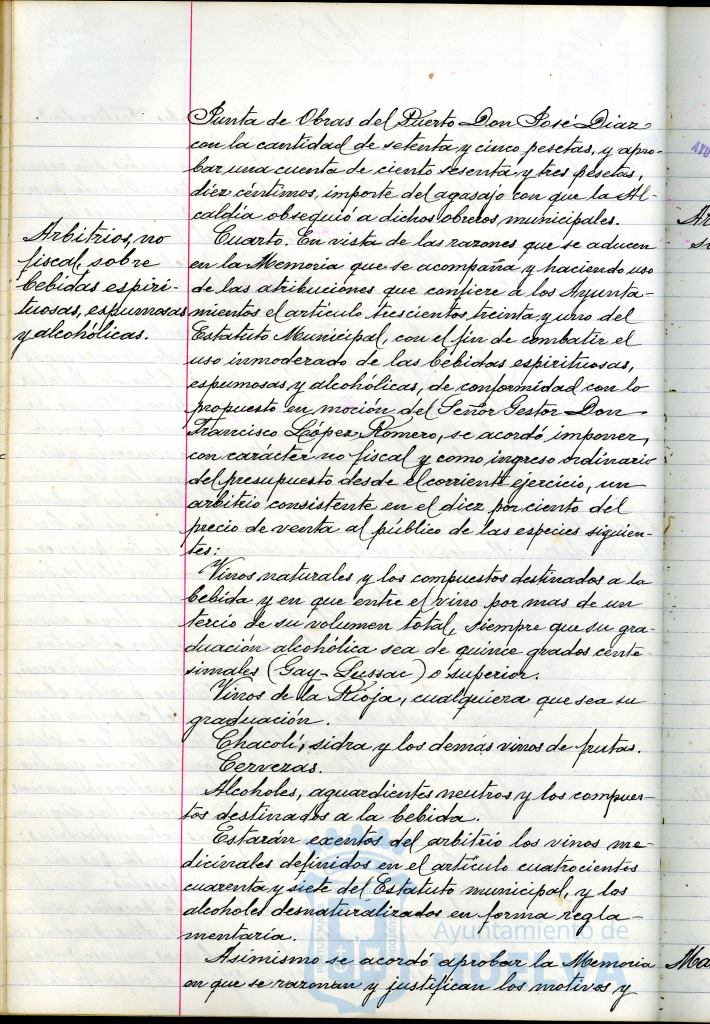 Junta de Obras del Puerto Don José Diaz
con la cantidad de setenta y cinco pesetas, y apro-
bar una cuenta de ciento sesenta y tres pesetas,
diez céntimos, importe del agasajo con que la Al-
caldía obsequió a dichos obreros municipales.
Arbitrios, no
fiscal, sobre
bebidas espiri-
tuosas, espumosas
y alcohólicas.
Cuarto. En vista de las razones que se aducen
en la Memoria que se acompaña y haciendo uso
de las atribuciones que confiere a los Ayunta-
mientos el artículo trescientos treinta y uno del
Estatuto Municipal, con el fin de combatir el
uso inmoderado de las bebidas espirituosas,
espumosas y alcohólicas, de conformidad con lo
propuesto en moción del Señor Gestor Don
Francisco López Romero, se acordó imponer,
con carácter no fiscal y como ingreso ordinario
del presupuesto desde el corriente ejercicio, un
arbitrio consistente en el diez por ciento del
precio de venta al público de las especies siguien-
tes:
Vinos naturales y los compuestos destinados a la
bebida y en que entre el vino por mas de un
tercio de su volumen total, siempre que su gra-
duación alcohólica sea de quince grados cente-
simales (Gay-Lussac) o superior.
Vinos de la Rioja, cualquiera que sea su
graduación.
Chacolí, sidra y los demás vinos de frutas.
Cervezas.
Alcoholes, aguardientes neutros y los compues-
tos destinados a la bebida.
Estarán exentos del arbitrio los vinos me-
dicinales definidos en el artículo cuatrocientos
cuarenta y siete del Estatuto municipal, y los
alcoholes desnaturalizados en forma regla-
mentaria.
Asimismo se acordó aprobar la Memoria
en que se razonan y justifican los motivos y
Ayuntamiento de